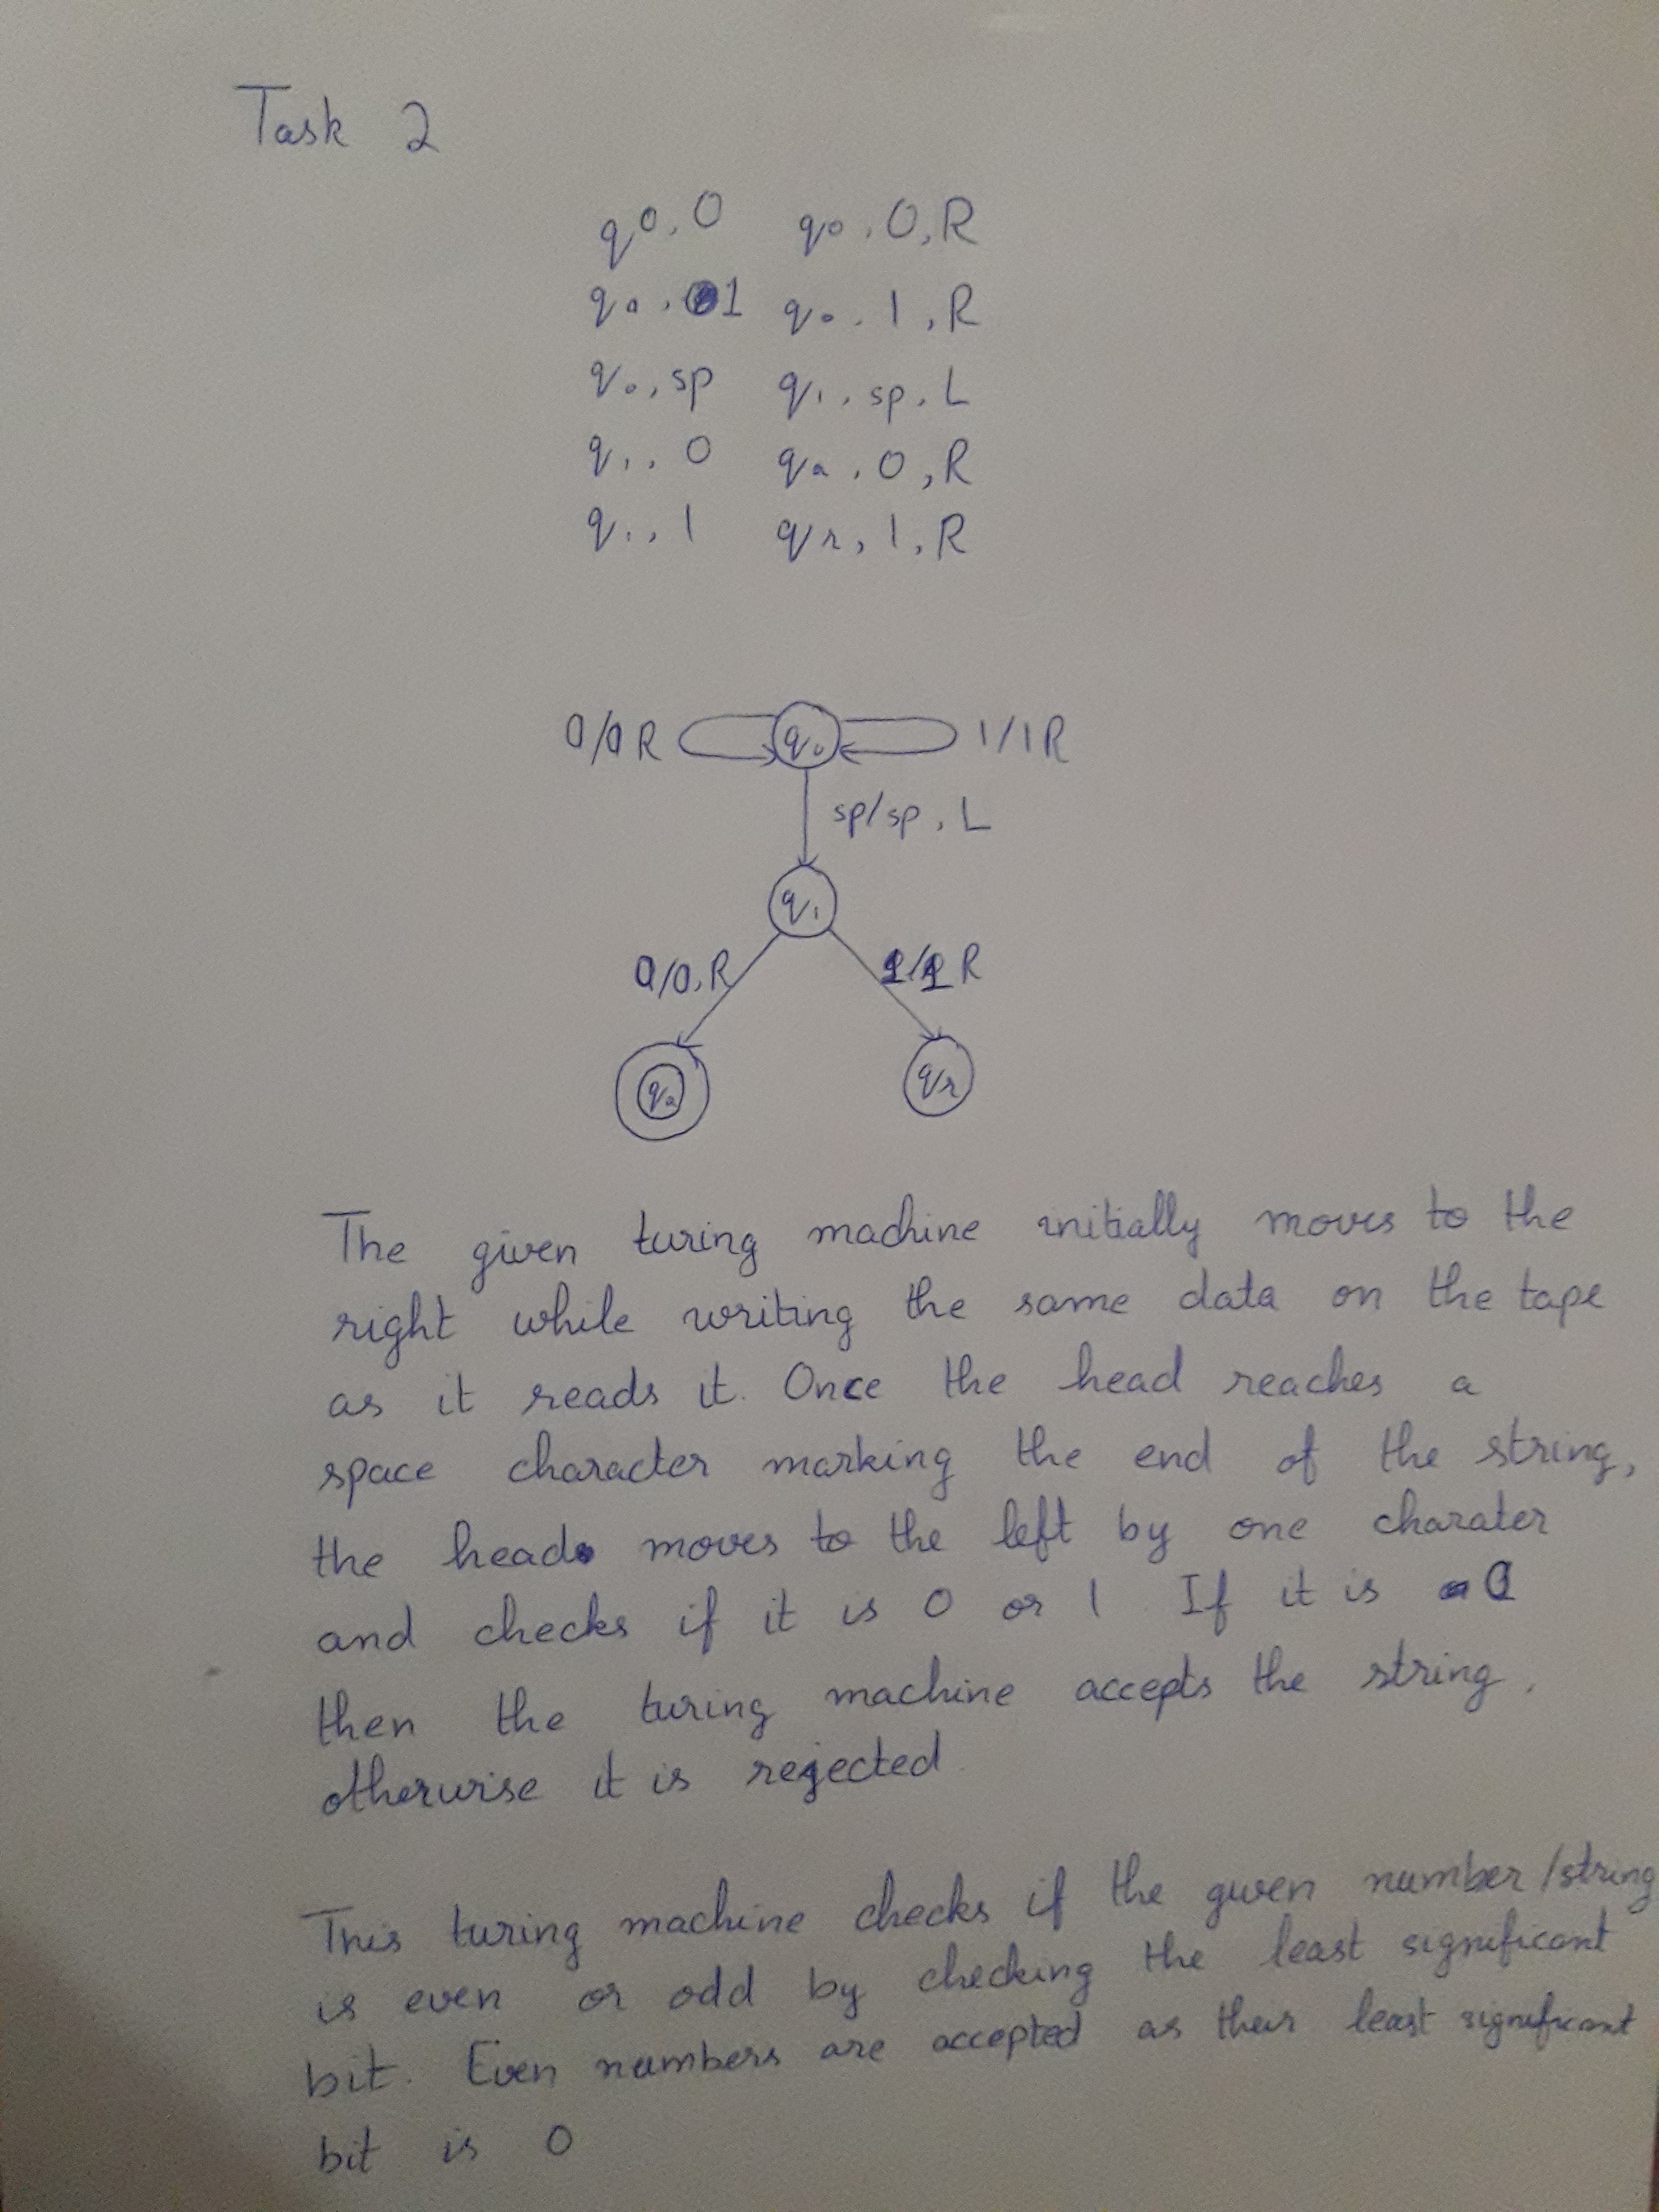 Task 2
q0, 0 q0, 0, R
q0, 1 q0, 1, R
q0, sp q1, sp, L
q1, 0 qa, 0, R
q1, 1 qr, 1, R
0/0 R q0 1/1 R
sp/sp, L
q1
0/0, R 1/1 R
qa qr
The given turing machine initially moves to the
right while writing the same data on the tape
as it reads it. Once the head reaches a
space character marking the end of the string,
the head moves to the left by one charater
and checks if it is 0 or 1 If it is 0
then the turing machine accepts the string,
otherwise it is rejected
This turing machine checks if the given number/string
is even or odd by checking the least significant
bit. Even numbers are accepted as their least significant
bit is 0